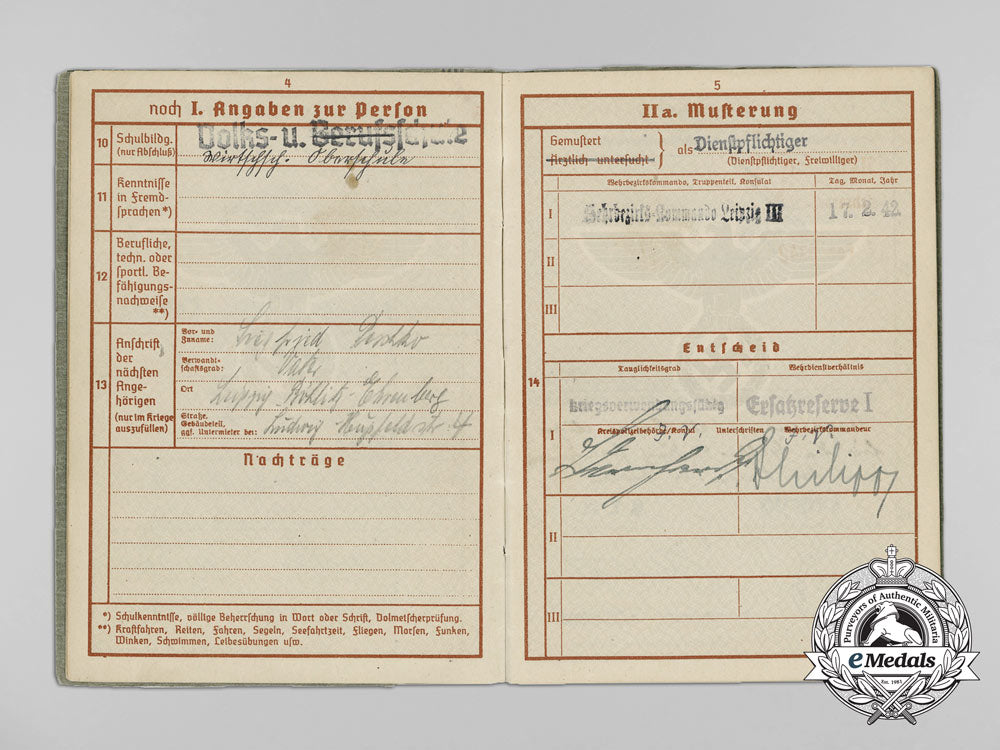 4
noch I. Angaben zur Person
10
Schulbildg.
(nur Abschluß)
Volks- u. Berufsschule
Wirtschsch. Oberschule
11
Kenntnisse
in Fremd-
sprachen*)
12
Berufliche,
techn. oder
sportl. Be-
fähigungs-
nachweise
**)
13
Anschrift
der
nächsten
Ange-
hörigen
(nur im Kriege
auszufüllen)
Vor- und
Zuname:
Verwandt-
schaftsgrad:
Ort
Leipzig Böhlitz-Ehrenberg
Straße,
Gebäudeteil,
ggf. Untermieter bei:
Ludwig Hupfeldstr. 4
Nachträge
*) Schulkenntnisse, völlige Beherrschung in Wort oder Schrift, Dolmetscherprüfung.
**) Kraftfahren, Reiten, Fahren, Segeln, Seefahrtzeit, Fliegen, Morsen, Funken,
Winken, Schwimmen, Leibesübungen usw.
5
IIa. Musterung
Gemustert
ärztlich untersucht
als Dienstpflichtiger
(Dienstpflichtiger, Freiwilliger)
Wehrbezirkskommando, Truppenteil, Konsulat
Tag, Monat, Jahr
I
Wehrbezirks-Kommando Leipzig III
17. 2. 42
II
III
Entscheid
14
Tauglichkeitsgrad
Wehrdienstverhältnis
kriegsverwendungsfähig
Ersatzreserve I
I
Kreispolizeibehörde/Konsul
Unterschriften
Wehrbezirkskommandeur
J. V.
J. V.
Philipp
II
III
Purveyors of Authentic Militaria
eMedals
Est. 1981